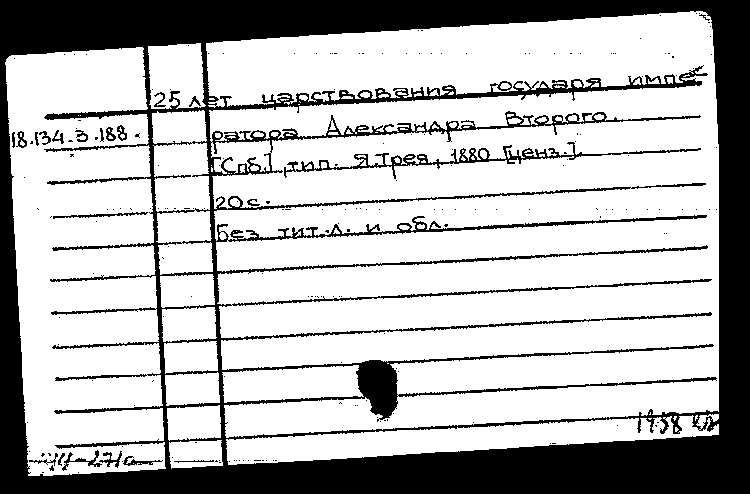 25 лет царствования государя импе-
18.134.3.188.
ратора Александра Второго.
[Спб.], тип. Я.Трея, 1880 [ценз.].
20 с.
Без тит.л. и обл.
1958
44-271а